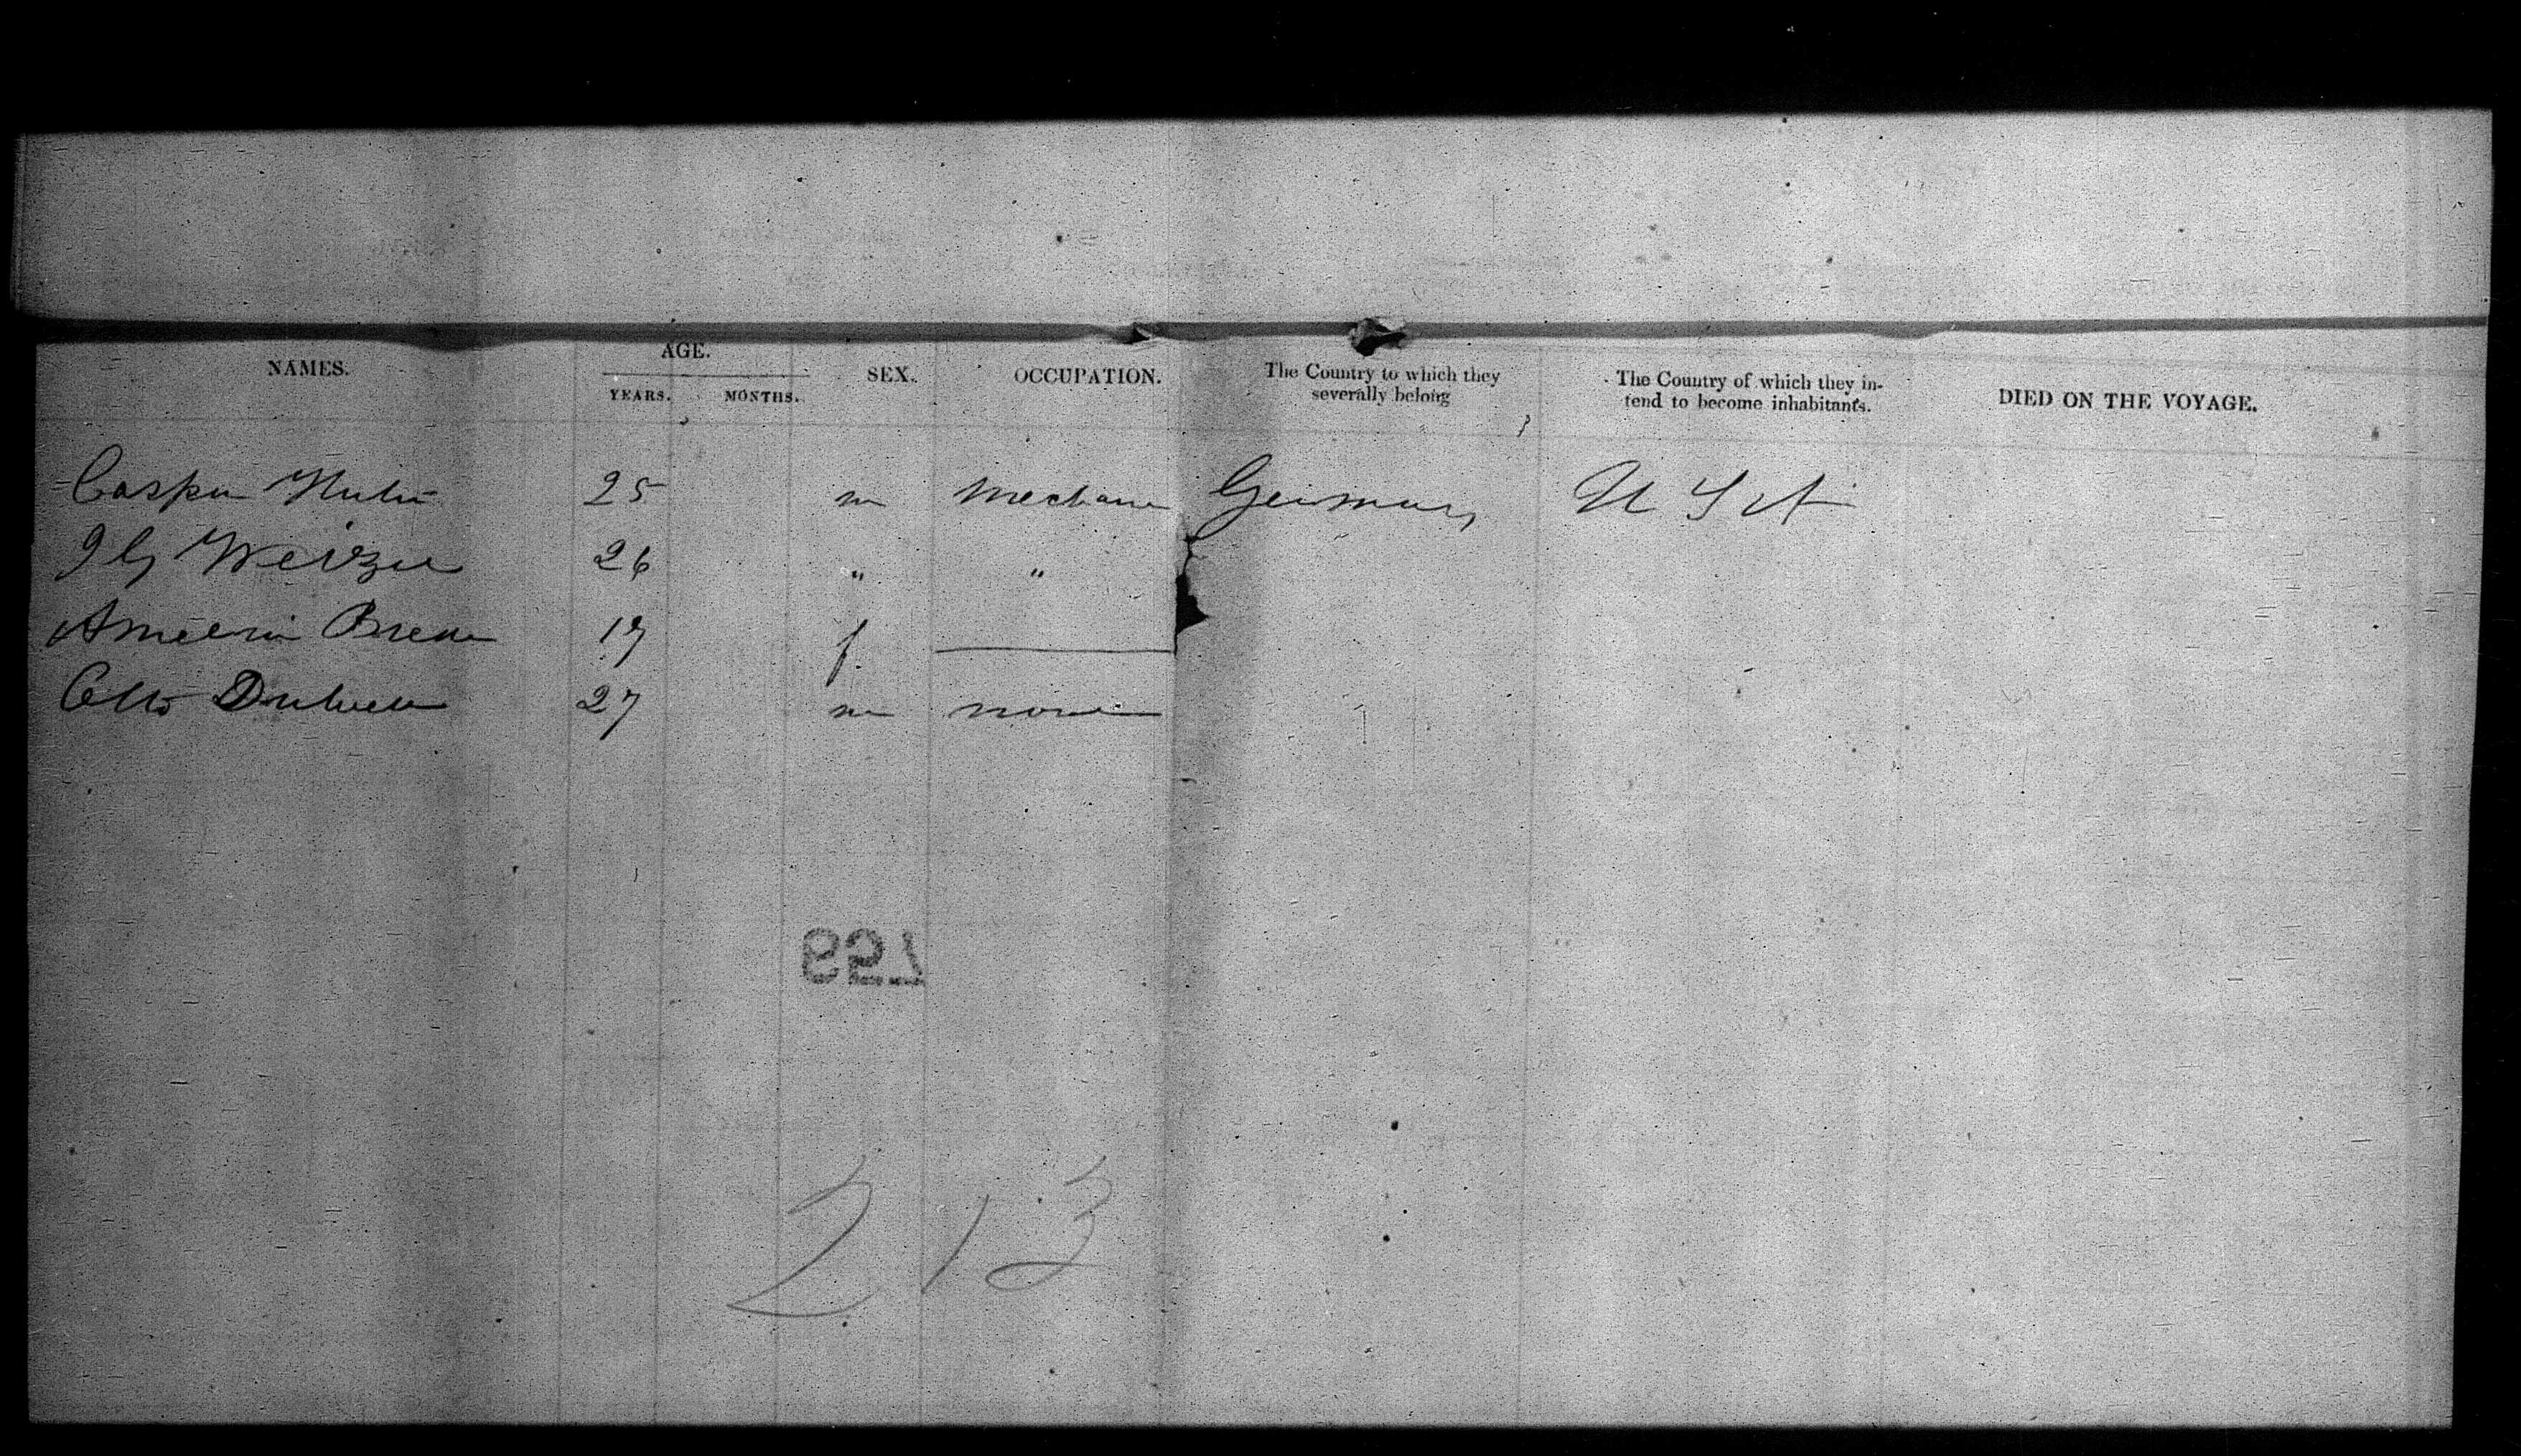 NAMES. AGE. SEX. OCCUPATION. The Country to which they severally belong The Country of which they intend to become inhabitants. DIED ON THE VOYAGE.
YEARS. MONTHS.
Casper 25 m Mechanic Germany U S A
26 " "
17 f.
Otto 27 m none
759
213